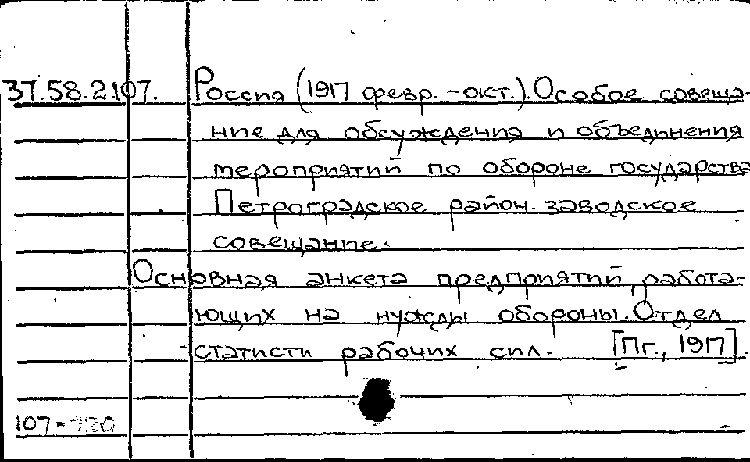 37.58.2107. Россия (1917 февр.-окт.). Особое совеща-
ние для обсуждения и объединения
мероприятий по обороне государства
Петроградское район. заводское
совещание.
Основная анкета предприятий, работа-
ющих на нужды обороны. Отдел
статисти рабочих сил. [Пг., 1917].
107-